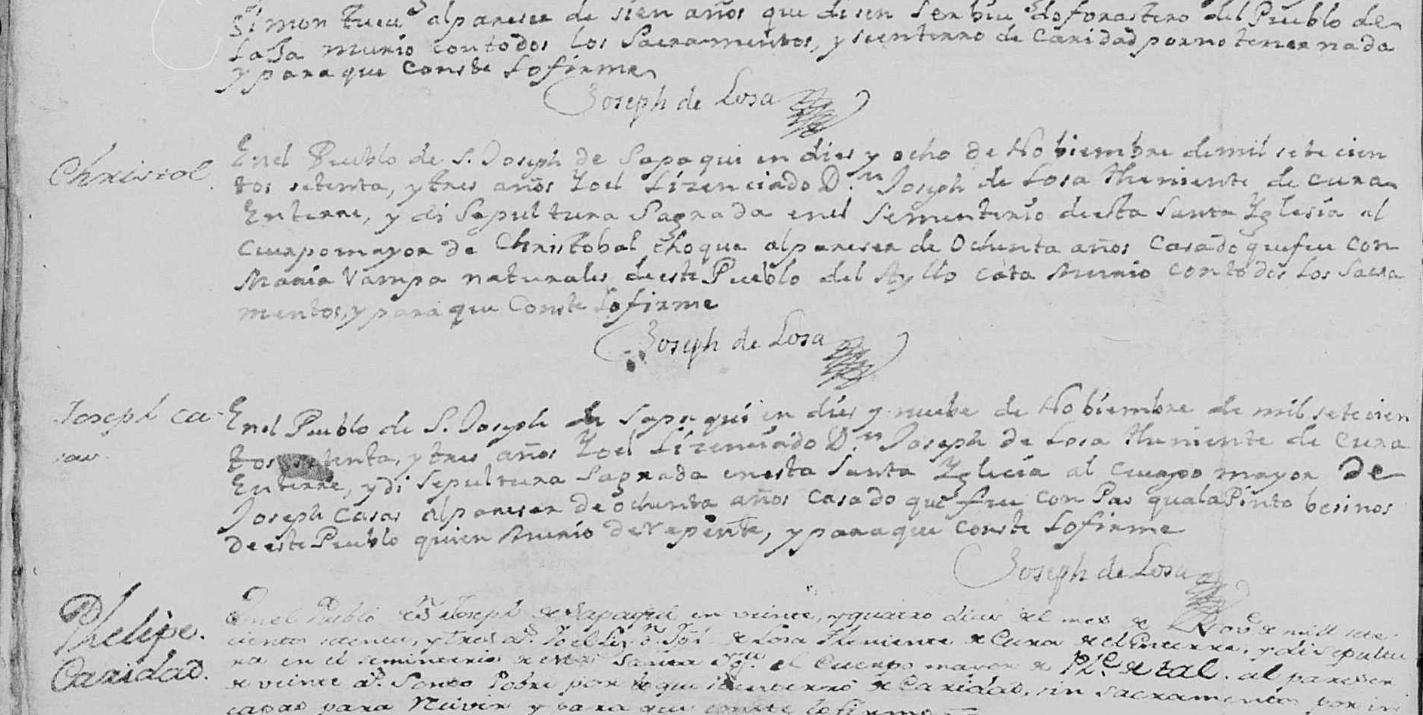 Simon alpareser de sien años que disen ser forastero del Pueblo de
murio con todos los Sacramentos, y se enterro de Caridad por no tener nada
y para que Conste Lo firme
Joseph de Losa
Christol.
En el Pueblo de S. Joseph de Sapaqui en dies y ocho de Nobiembre de mil setecien
tos setenta, y tres años Yo el Lizenciado D.n Joseph de Losa Theniente de cura
Enterre, y di Sepultura Sagrada en el Sementerio de esta Santa Yglesia al
Cuerpo mayor de Christobal Choque alpareser de Ochenta años Casado que fue con
Maria Vampa naturales de este Pueblo del Ayllo Cata Murio con todos los Sacra
mentos, y para que Conste Lo firme
Joseph de Losa
Joseph ca-
sas.
En el Pueblo de S. Joseph de Sapaqui en dies y nuebe de Nobiembre de mil setecien
tos setenta, y tres años Yo el Lizenciado D.n Joseph de Losa Theniente de Cura
Enterre, y di Sepultura Sagrada en esta Santa Yglecia al Cuerpo mayor de
Joseph Casas alpareser de ochenta años Casado que fue con Pasquala Pinto besinos
de este Pueblo quien Murio de repente, y para que Conste Lo firme
Joseph de Losa
Phelipe.
Caridad.
En el Pueblo de S. Joseph de Sapaqui en veinte, y quatro dias del mes de Nov.e de mill sete
cientos setenta, y tres a.s Yo el de Losa Theniente de Cura de el Enterre, y di sepultu
ra en el sementerio de Santa Yg.a el Cuerpo mayor de al pareser
de veinte a.s Pobre por lo que se enterró de Caridad, sin sacramentos por
y para que conste lo firme